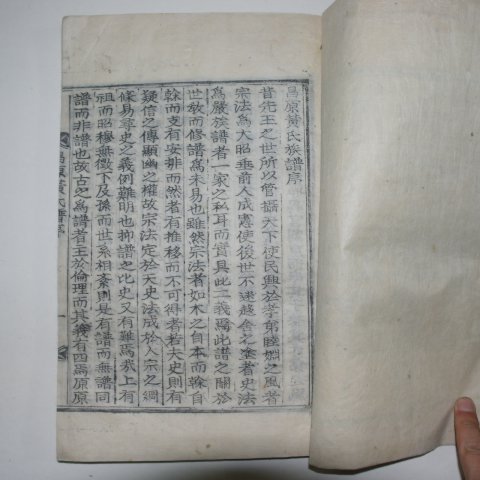 昌原黃氏族譜序
昔先王之世所以管攝天下使民興於孝弟睦婣之風者
宗法爲大昭垂前人成憲使後世不迷趨舍之塗者史法
爲嚴族譜者一家之私耳而實具此二義焉此譜之關於
世敎而修譜爲未易也雖然宗法者如木之自本而榦自
榦而支有安排而然者有推移而不可得者若夫史則有
疑信之傳顯幽之權故宗法定於天史法成於人宗之綱
條易尋史之義例難明也抑譜之比史又有難焉者上有
祖而昭穆無徵下及孫而世系相紊則是有譜而無譜同
譜而非譜也故古之爲譜者主於倫理而其義有四焉原原
昌原黃氏譜序
一